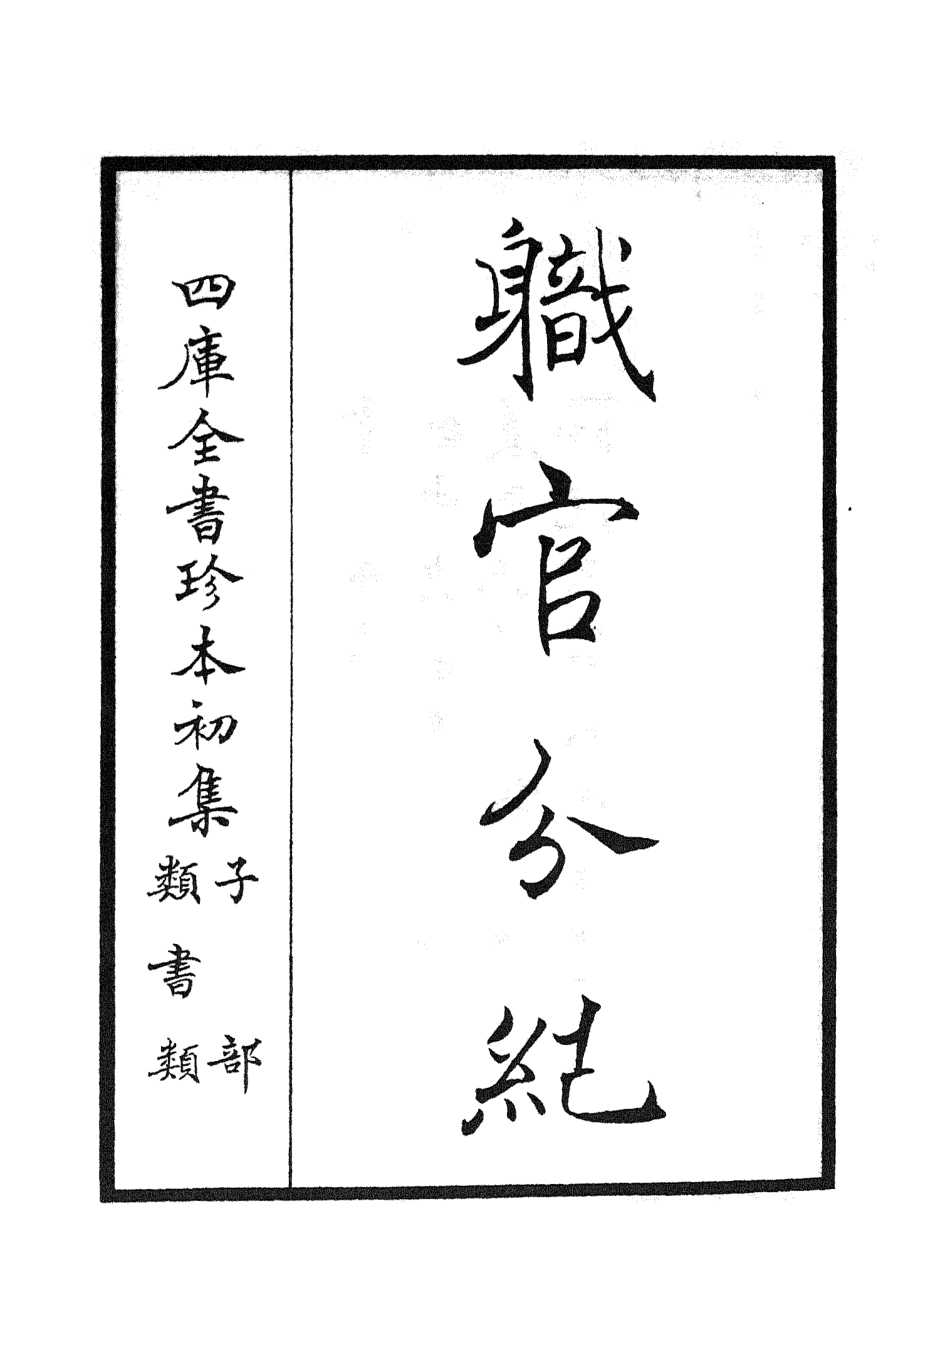 軄官分紀
四庫全書珍本初集
子部
類書類